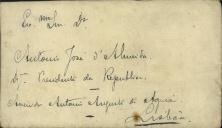 Ex.mo Sn. Dr.
Antonio José d'Almeida.
D. Presidente da Republica.
Avenida Antonio Augusto de Aguiar
Lisboa